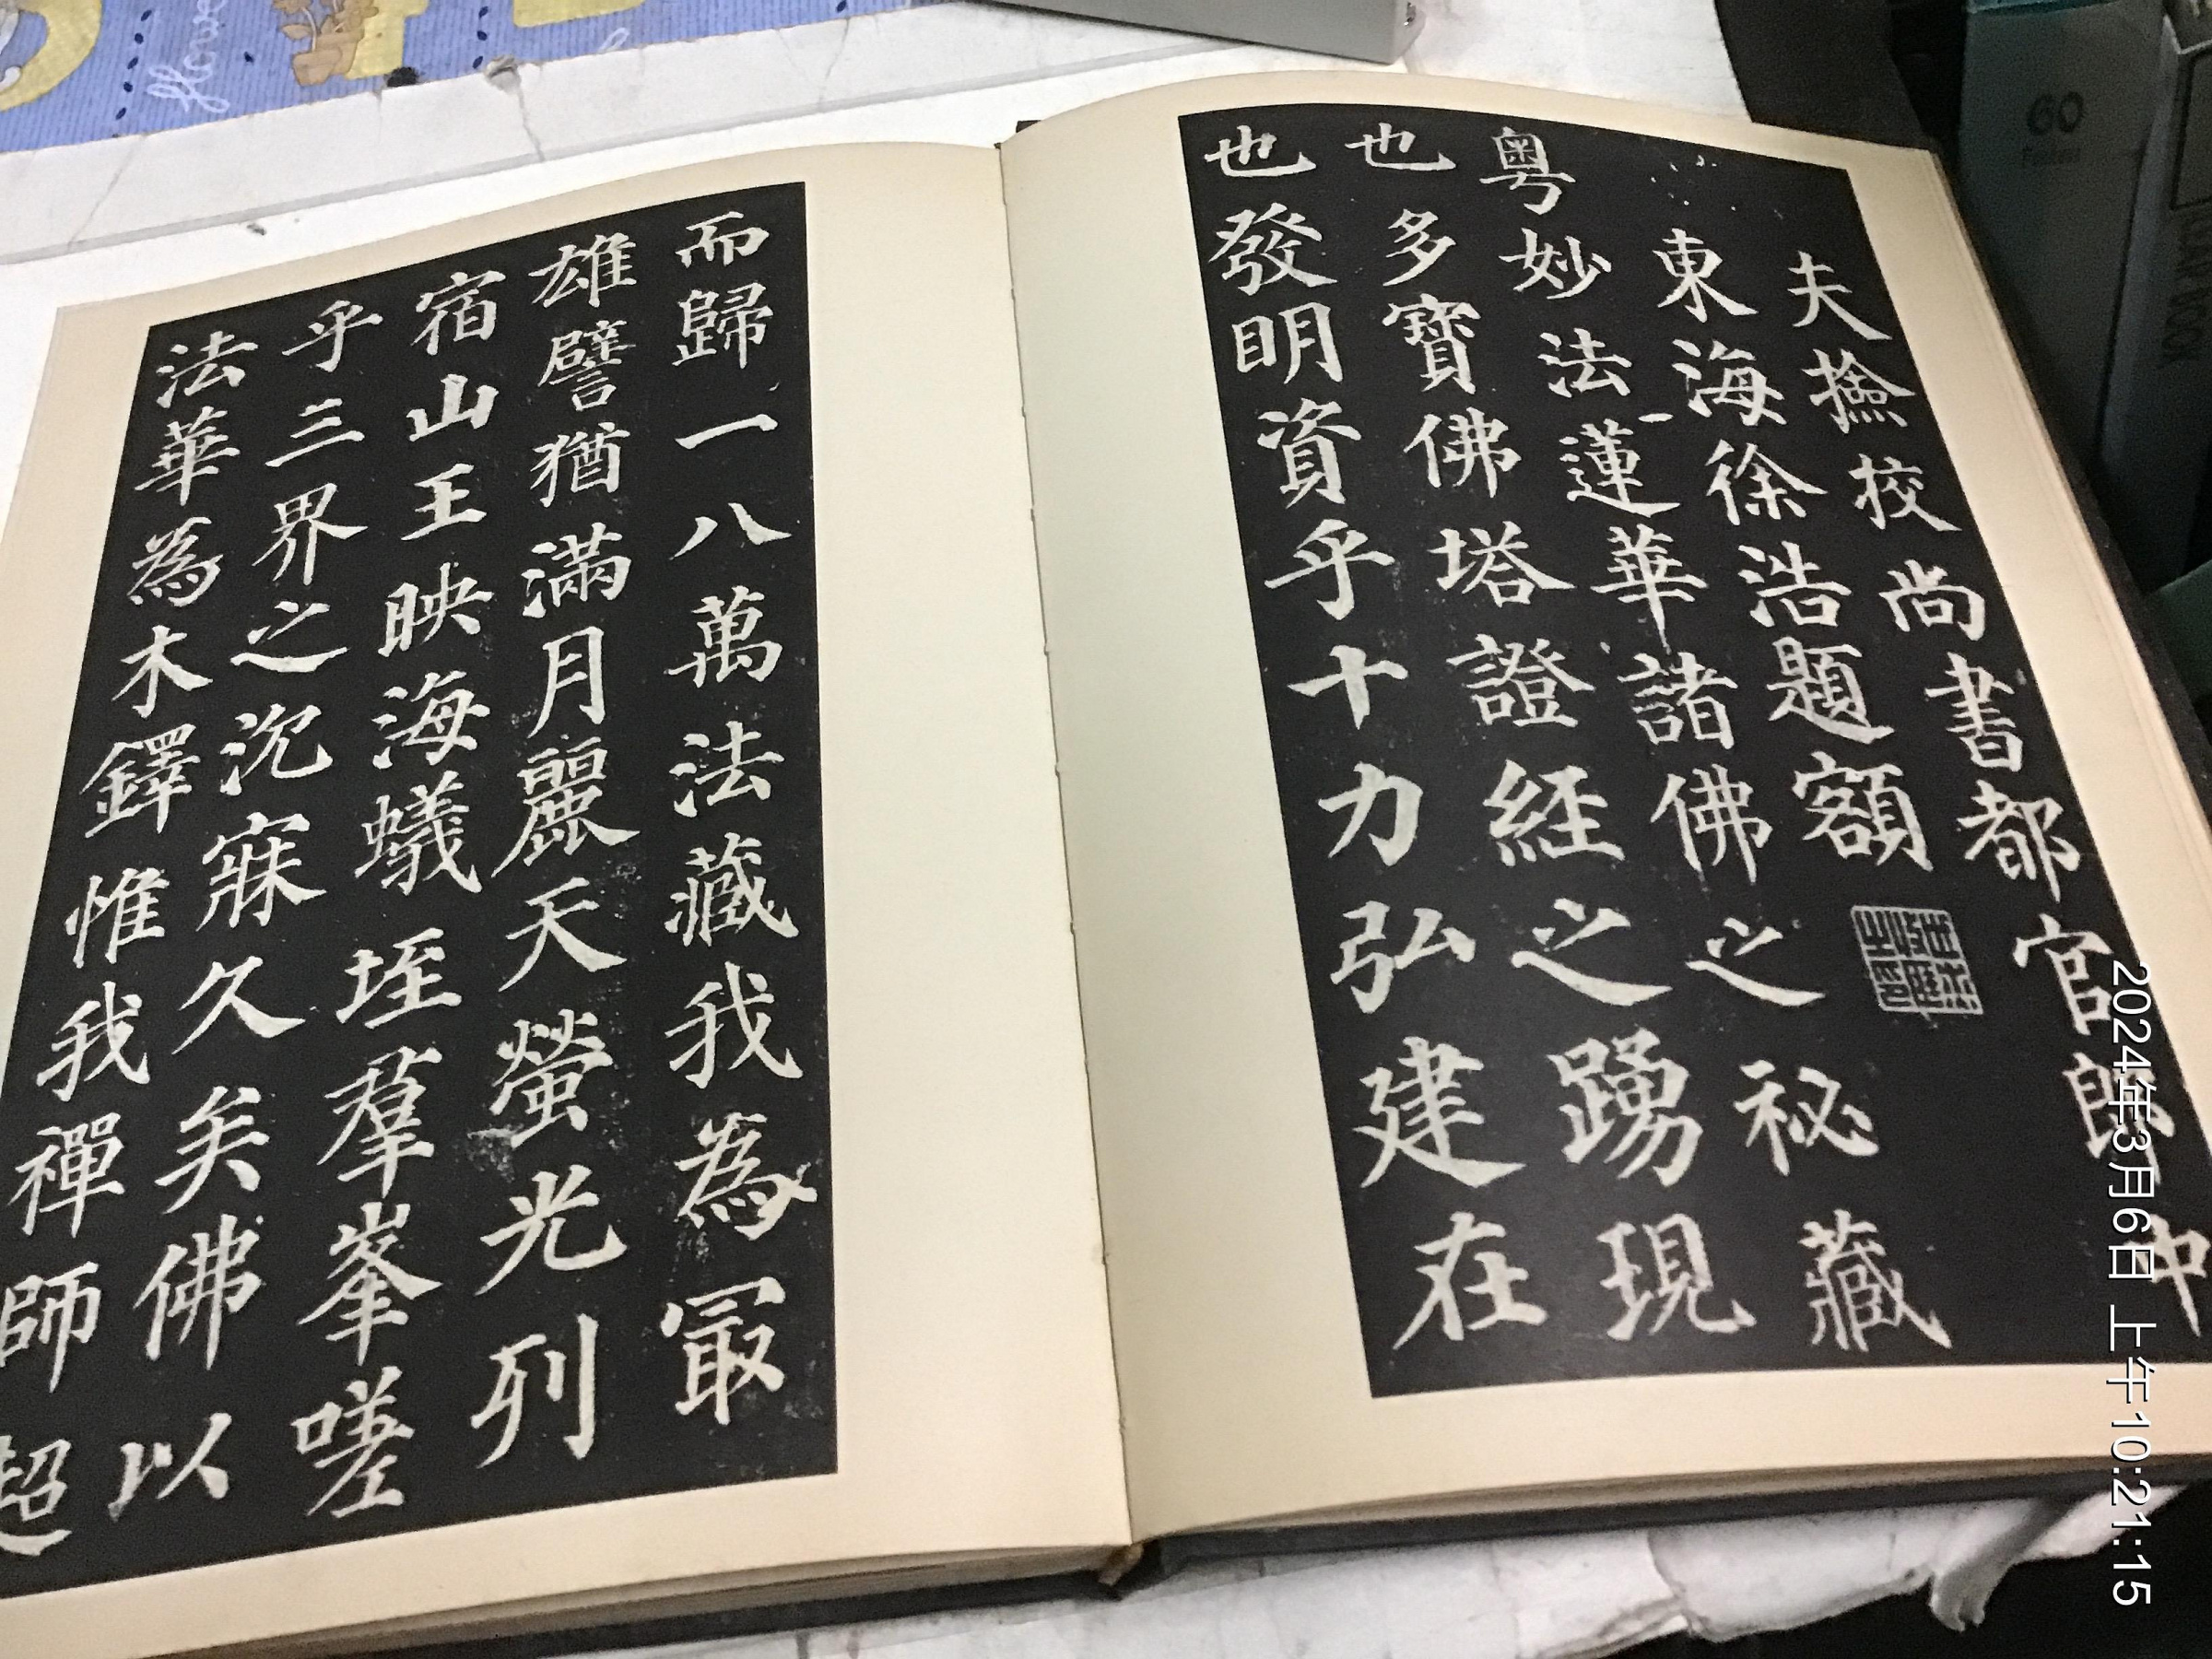 夫撿挍尚書都官郎中
東海徐浩題額
粤妙法蓮華諸佛之祕藏
也多寶佛塔證經之踴現
也發明資乎十力弘建在
而歸一八萬法藏我為冣
雄譬猶滿月麗天螢光列
宿山王映海蟻垤羣峯嗟
乎三界之沉寐久矣佛以
法華為木鐸惟我禪師超
2024年3月6日 上午10:21:15
60